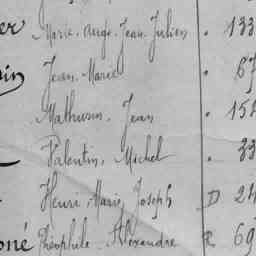 er Marie, Ange, Jean, Julien . 133
in Jean-Marie . 67
Mathurin, Jean . 154
Valentin, Michel . 33
Henri, Marie, Joseph D 24
oné Théophile, Alexandre R 69